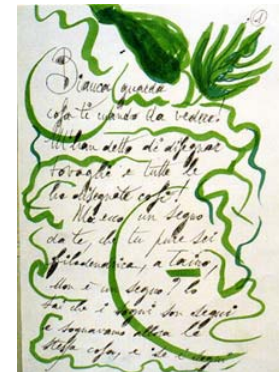 Bianca, guarda
cosa ti mando da vedere!
M'han detto di disegnar
tovaglie e tutte le
ho disegnate così!
Ma ecco un segno
da te, che tu pure sei
filodendrica, a
non è un segno? lo
sai che i sogni son segni
e sognavamo allora la
stessa cosa, e se i segni